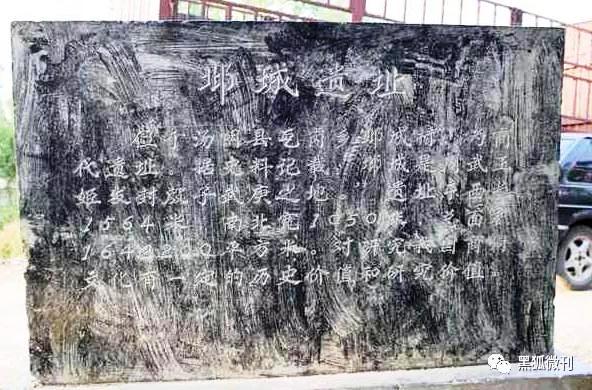 邶城遗址
位于汤阴县瓦岗乡邶城村，为商
代遗址。据史料记载，"邶城是周武王
姬发封纣子武庚之地。"遗址东西长
1564米，南北宽1050米，总面积
1642200平方米，对研究我国商
文化有一定的历史价值和研究价值。
黑狐微刊